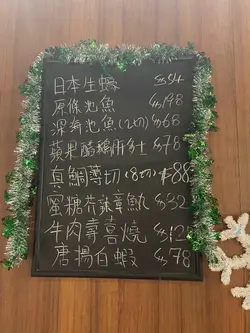 日本生蠔 $54
原條池魚 $198
深海池魚(2切) $68
蘋果醋桶蠔多士 $78
真鯛薄切(8切) $88
蜜糖芥辣章魚 $32
牛肉壽喜燒 $12
唐揚白蝦 $78